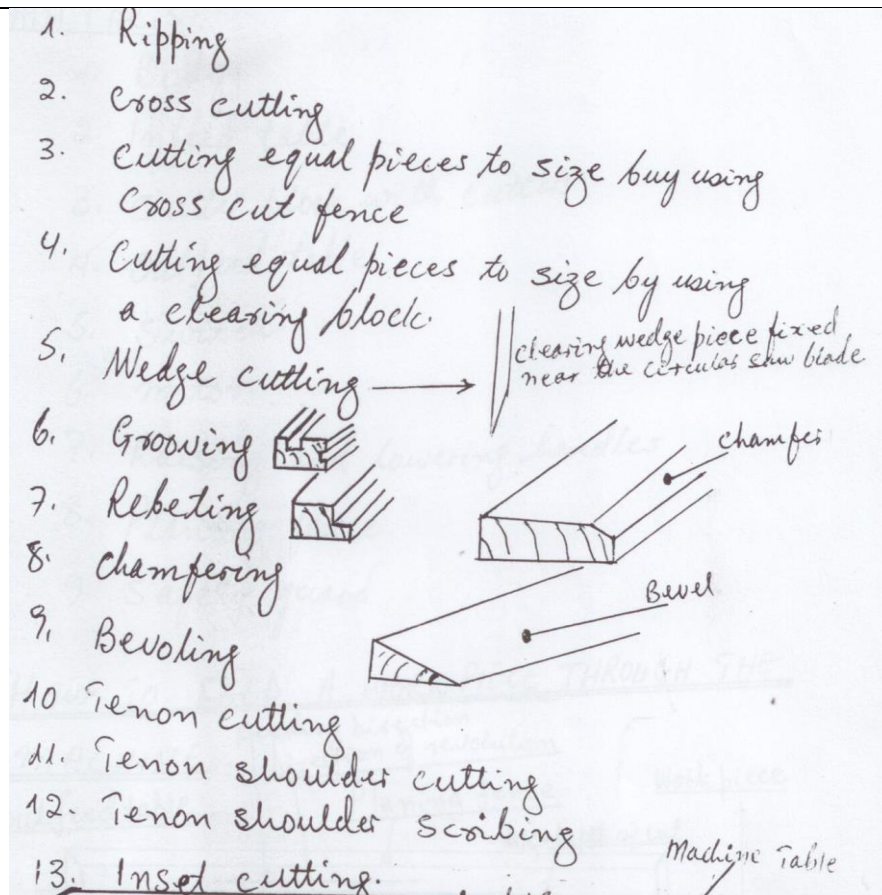 1. Ripping
2. Cross cutting
3. Cutting equal pieces to size buy using
Cross cut fence
4. Cutting equal pieces to size by using
a clearing block.
5. Wedge cutting
clearing wedge piece fixed
near the circular saw blade
6. Grooving
chamfer
7. Rebeting
8. Chamfering
Bevel
9. Bevoling
10 Tenon cutting
11. Tenon shoulder cutting
12. Tenon shoulder scribing
13. Inset cutting.
Machine Table